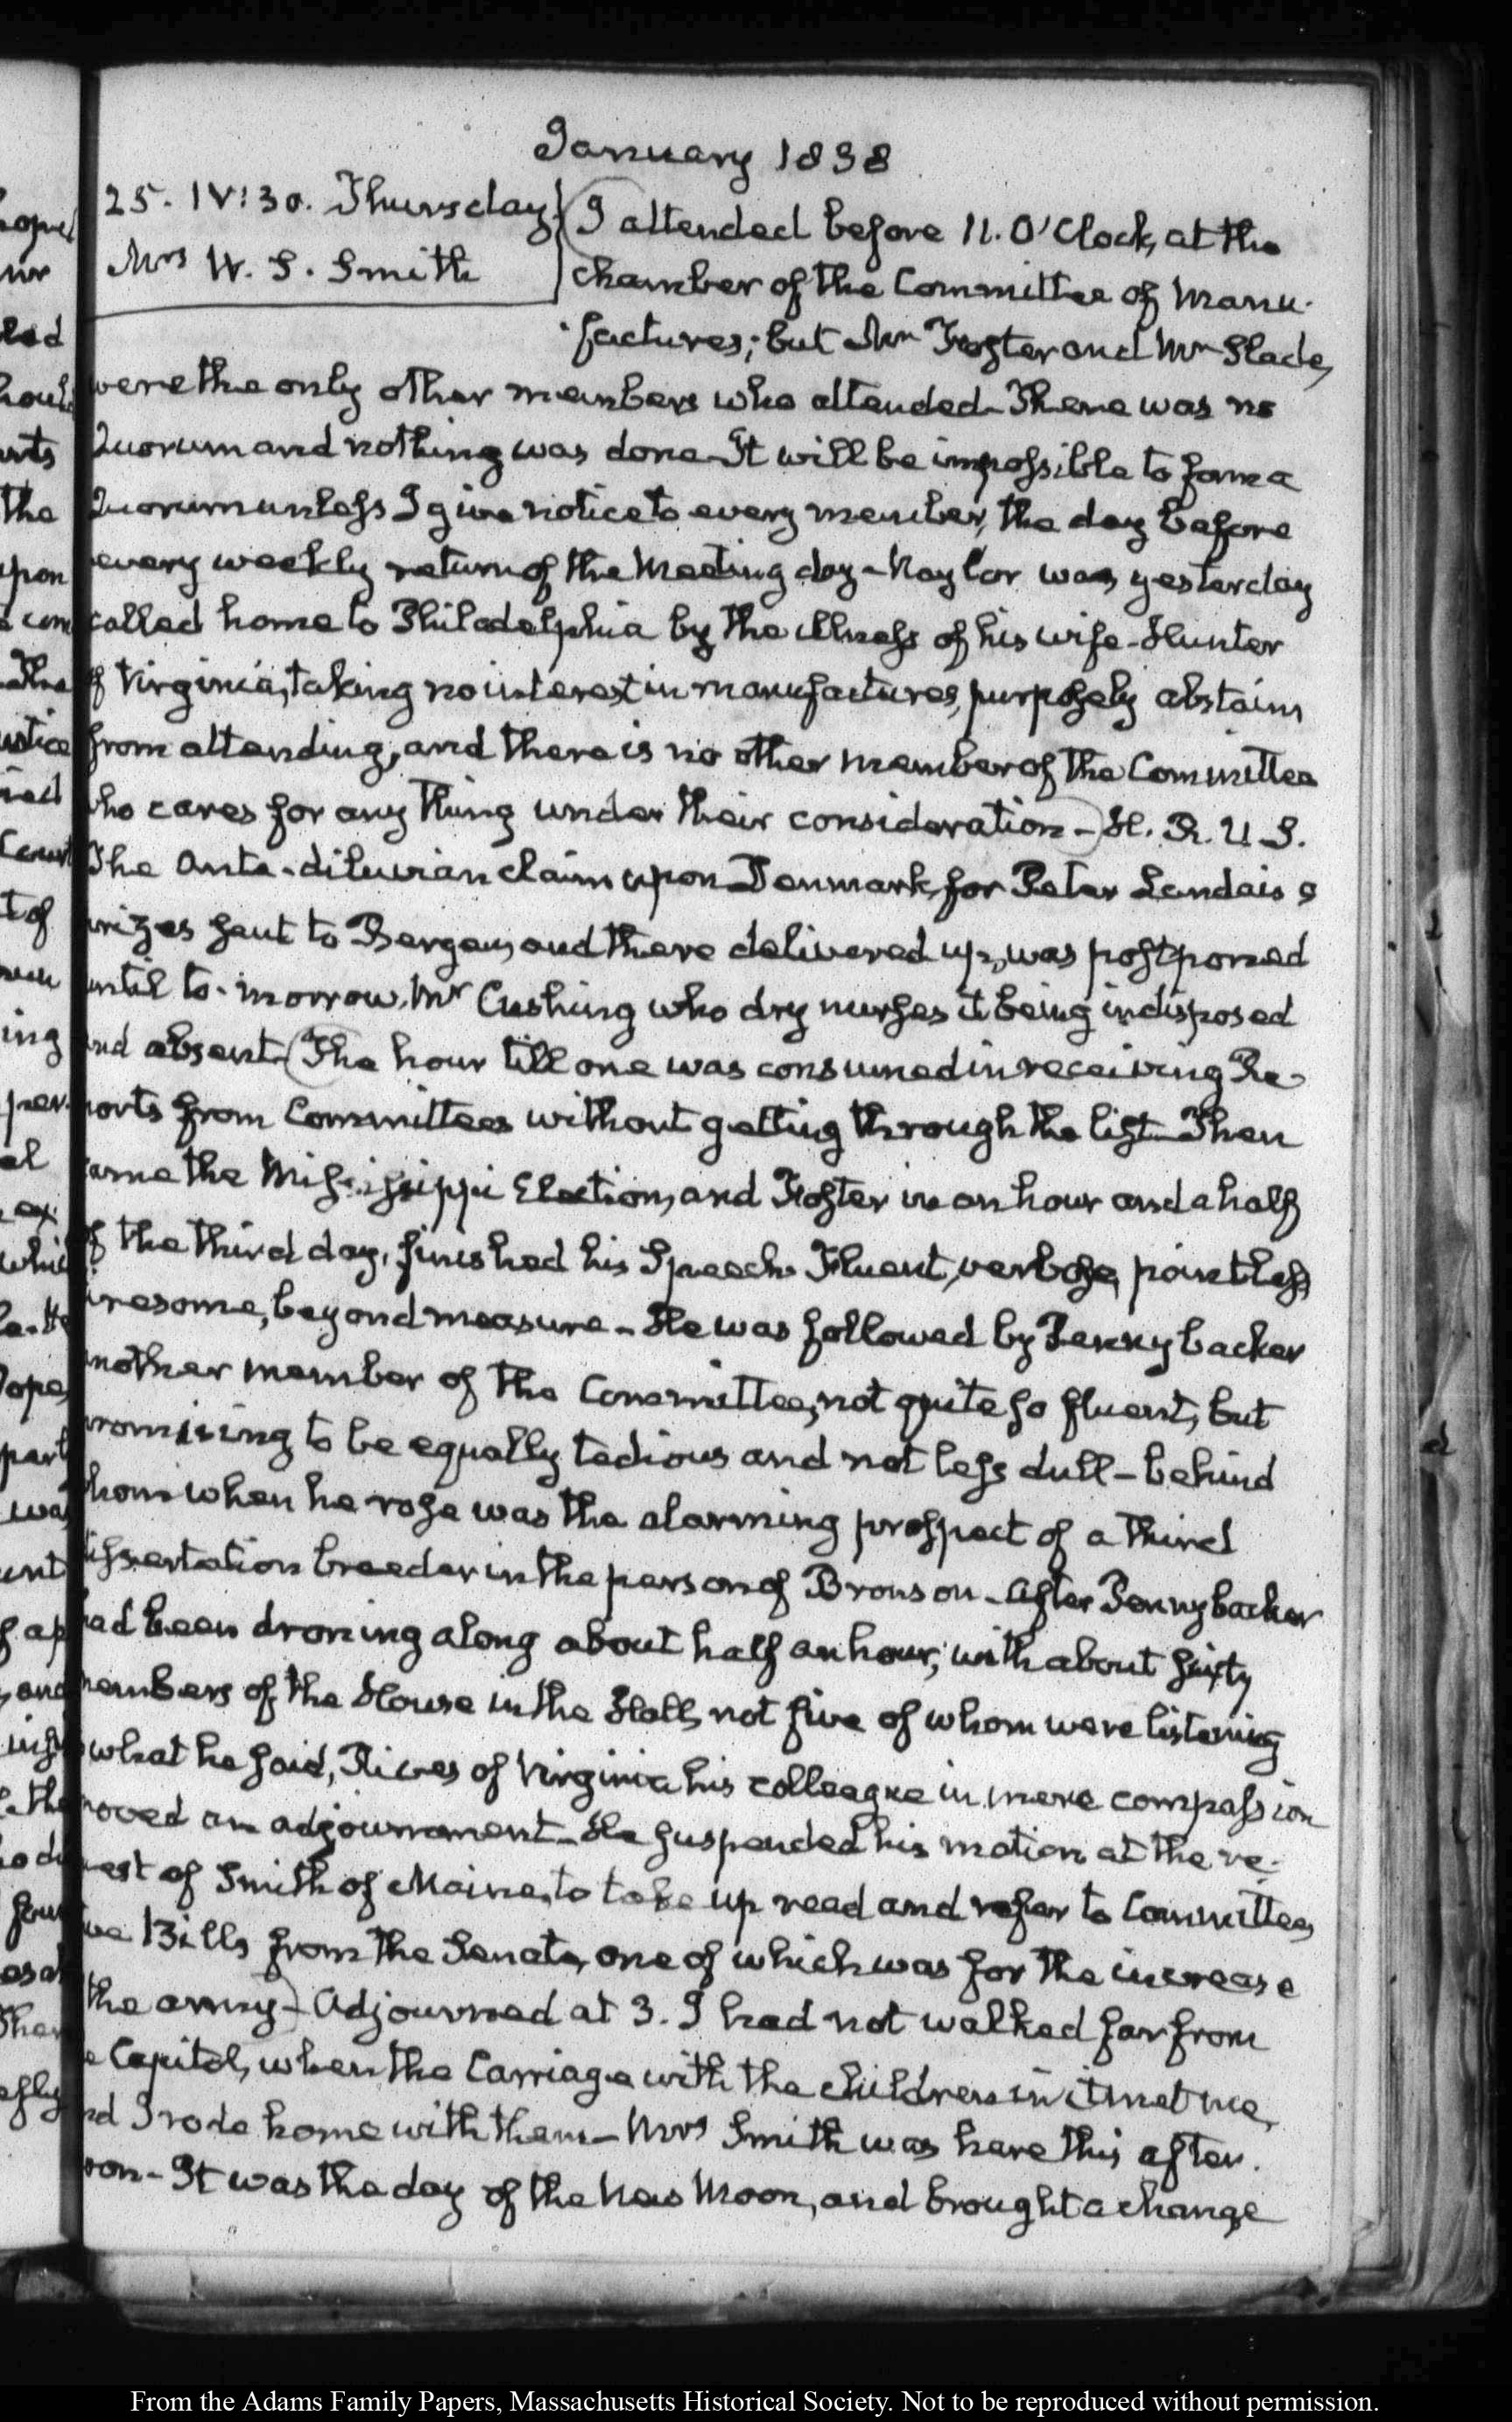 January 1838
25. IV:30. Thursday
Mrs W. S. Smith
I attended before 11. O'Clock, at the
chamber of the Committee of Manu-
factures; but Mr Foster and Mr Slade,
were the only other members who attended- There was no
Quorum and nothing was done- It will be impossible to form a
Quorum unless I give notice to every member, the day before
every weekly return of the Meeting day- Naylor was yesterday
called home to Philadelphia by the illness of his wife- Hunter
of Virginia, taking no interest in manufactures, purposely abstains
from attending, and there is no other member of the Committee
who cares for any thing under their consideration- H. R. U S.
The Ante-diluvian claim upon Denmark, for Peter Landais's
prizes sent to Bergen, and there delivered up, was postponed
until to-morrow, Mr Cushing who dry nurses it being indisposed
and absent- The hour till one was consumed in receiving Re-
ports from Committees without getting through the list- Then
came the Mississippi Election, and Foster in an hour and a half
of the third day, finished his Speech- Fluent, verbose, pointless,
tiresome, beyond measure- He was followed by Pennybacker
another member of the Committee, not quite so fluent, but
promising to be equally tedious and not less dull- behind
whom when he rose was the alarming prospect of a third
dissertation breeder in the person of Bronson- After Pennybacker
had been droning along about half an hour, with about sixty
members of the House in the Hall, not five of whom were listening
what he said, Rives of Virginia his colleague in mere compassion
moved an adjournment- He suspended his motion at the re-
quest of Smith of Maine, to take up read and refer to Committees,
Bills from the Senate, one of which was for the increase
the army- Adjourned at 3. I had not walked far from
the Capitol, when the Carriage with the children in it met me,
and I rode home with them- Mrs Smith was here this after-
noon- It was the day of the New Moon, and brought a change
From the Adams Family Papers, Massachusetts Historical Society. Not to be reproduced without permission.